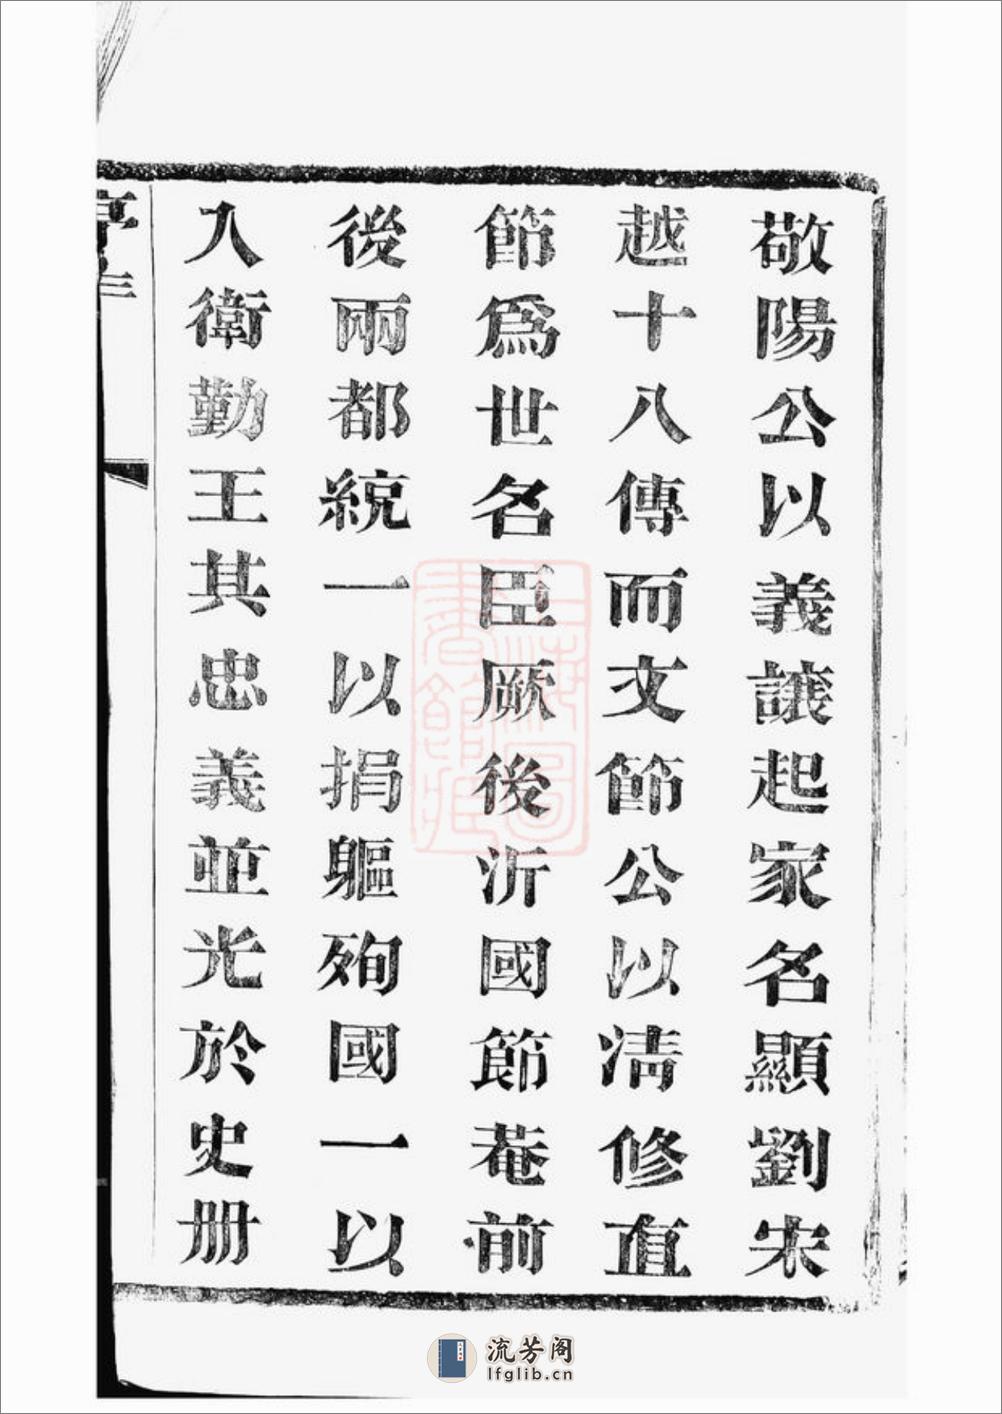 敬陽公以義讓起家名顯劉宋
越十八傳而文節公以清修直
節爲世名臣厥後沂國節菴前
後兩都統一以捐軀殉國一以
入衛勤王其忠義並光於史册
序 三
上海圖書館藏
流芳阁
lfglib.cn